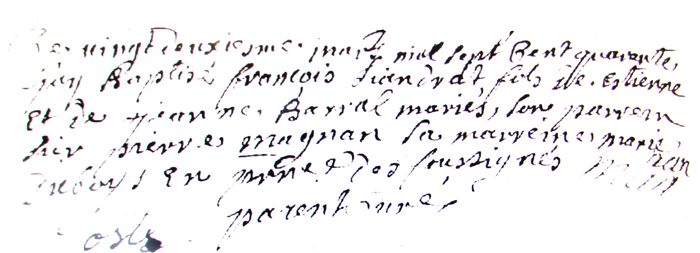 Le vingt deuxiesme mars mil sept cent quarante
j'ay Baptisé françois fils de Estienne
Et de jeanne Barral mariés, son parrein
sier pierre magnan sa marreine marie
En des soussignés
parent curé